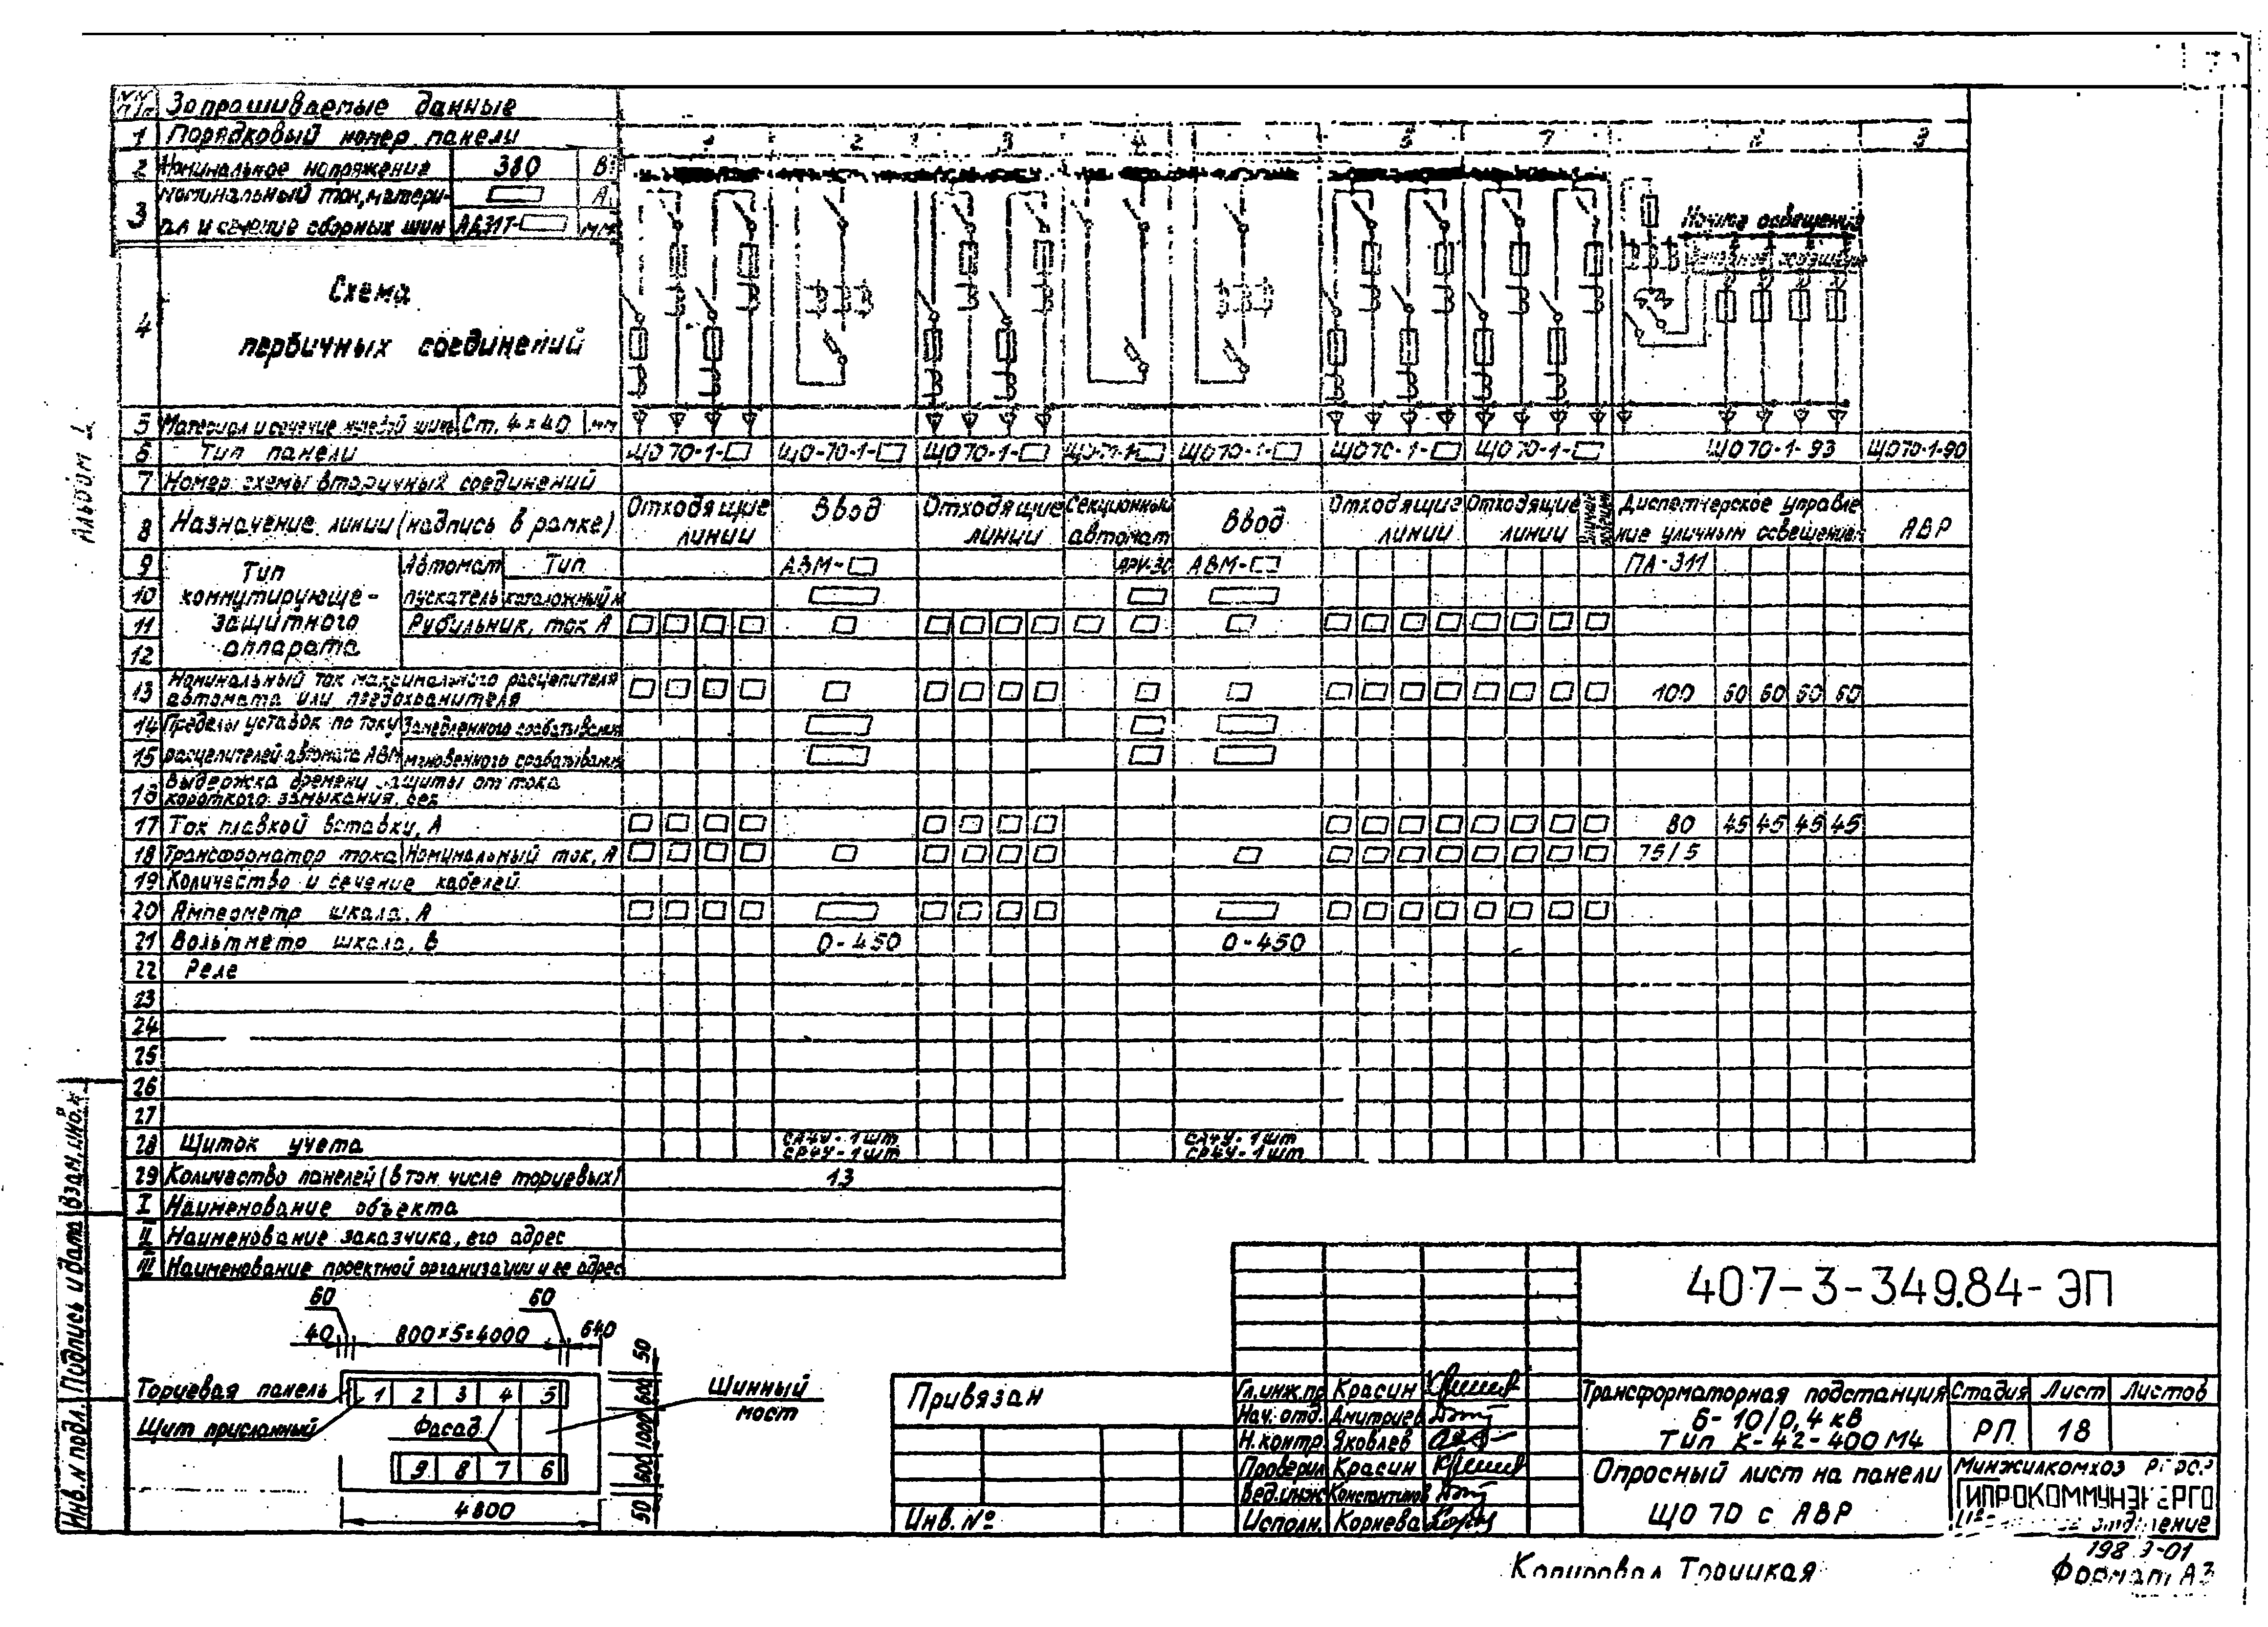 Запрашиваемые данные
1 Порядковый номер панели 2 3 4 7 9
2 Номинальное напряжение 380 В
3 Номинальный ток, матери-
ал и сечение сборных шин АД31Т-
А
мм
4 Схема
первичных соединений
Ночное освещение
5 Материал и сечение нулевой шины Ст. 4×40 мм
6 Тип панели ЩО70-1- ЩО-70-1- ЩО70-1- ЩО70-1- ЩО70-1- ЩО70-1- ЩО70-1- ЩО70-1-93 ЩО70-1-90
7 Номер схемы вторичных соединений
8 Назначение линии (надпись в рамке)
Отходящие линии
Ввод
Отходящие линии
Секционный автомат
Ввод
Отходящие линии
Отходящие линии
Диспетчерское управле
ние уличным освещением
АВР
Тип
коммутирующе-
защитного
аппарата
9 Автомат Тип АВМ- АВМ- ПА-311
10 пускатель каталожный №
11 Рубильник, ток А
12
13 Номинальный ток максимального расцепителя
автомата или предохранителя 100 60 60 60 60
14 Пределы уставок по току Замедленного срабатывания
15 расцепителей автомата АВМ мгновенного срабатывания
16 Выдержка времени защиты от тока
короткого замыкания, сек
17 Ток плавкой вставки, А 80 45 45 45 45
18 Трансформатор тока Номинальный ток, А 75/5
19 Количество и сечение кабелей
20 Амперметр шкала, А
21 Вольтметр шкала, В 0-450 0-450
22 Реле
23
24
25
26
27
28 Щиток учета
СА4У-1шт СА4У-1шт
СР4У-1шт СР4У-1шт
29 Количество панелей (в том числе торцевых) 13
I Наименование объекта
II Наименование заказчика, его адрес
III Наименование проектной организации и ее адрес
Альбом
Взам.инв.№
Подпись и дата
Инв.N подл.
60 60
40 800×5=4000 640
50
600
1000
600
50
Торцевая панель
Щит присланный
1 2 3 4 5
Фасад
9 8 7 6
Шинный
мост
4800
Привязан
Инв. №
407-3-349.84-ЭП
Гл.инж.пр Красин
Нач. отд. Дмитриев
Н.контр. Яковлев
Проверил Красин
Вед.инж Константинов
Исполн. Корнева
Трансформаторная подстанция
6-10/0,4 кВ
Тип К-42-400 М4
Стадия Лист Листов
РП 18
Опросный лист на панели
ЩО 70 с АВР
Минжилкомхоз РСФСР
ГИПРОКОММУНЭНЕРГО
отделение
Копировал Троицкая
Формат А3